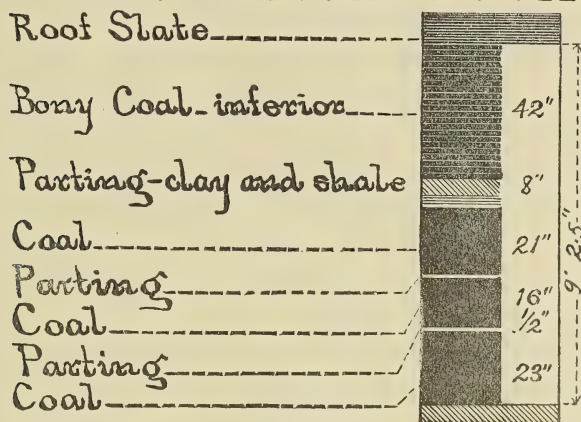 Roof Slate
Bony Coal-inferior
42"
Parting-clay and shale
8"
Coal
21"
Parting
16"
Coal
1/2"
Parting
23"
Coal
9' 2.5"